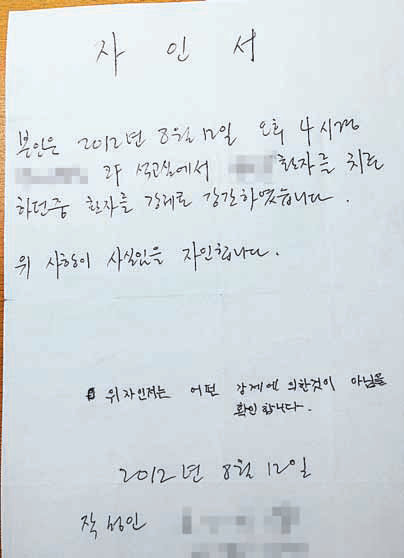 자 인 서
본인은 2012년 8월 12일 오후 4시경
과 석고실에서 환자를 치료
하던중 환자를 강제로 강간하였습니다.
위 사항이 사실임을 자인합니다.
위 자인서는 어떤 강제에 의한것이 아님을
확인합니다.
2012년 8월 12일
작성인